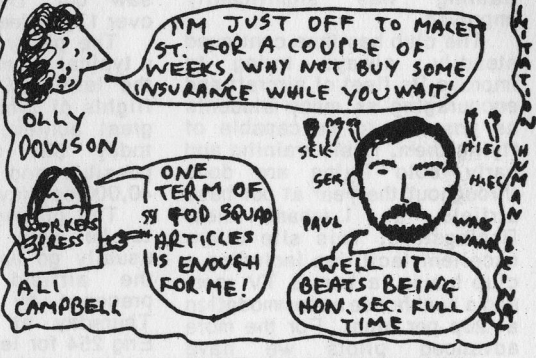 I'M JUST OFF TO MALET
ST. FOR A COUPLE OF
WEEKS WHY NOT BUY SOME
INSURANCE WHILE YOU WAIT!
OLLY
DOWSON
ONE
TERM OF
GOD SQUAD
ARTICLES
IS ENOUGH
FOR ME!
WORKERS
PRESS
ALI
CAMPBELL
HIEL
HIEL
PAUL
WELL IT
BEATS BEING
HON. SEC. FULL
TIME
IMITATION HUMAN BEING